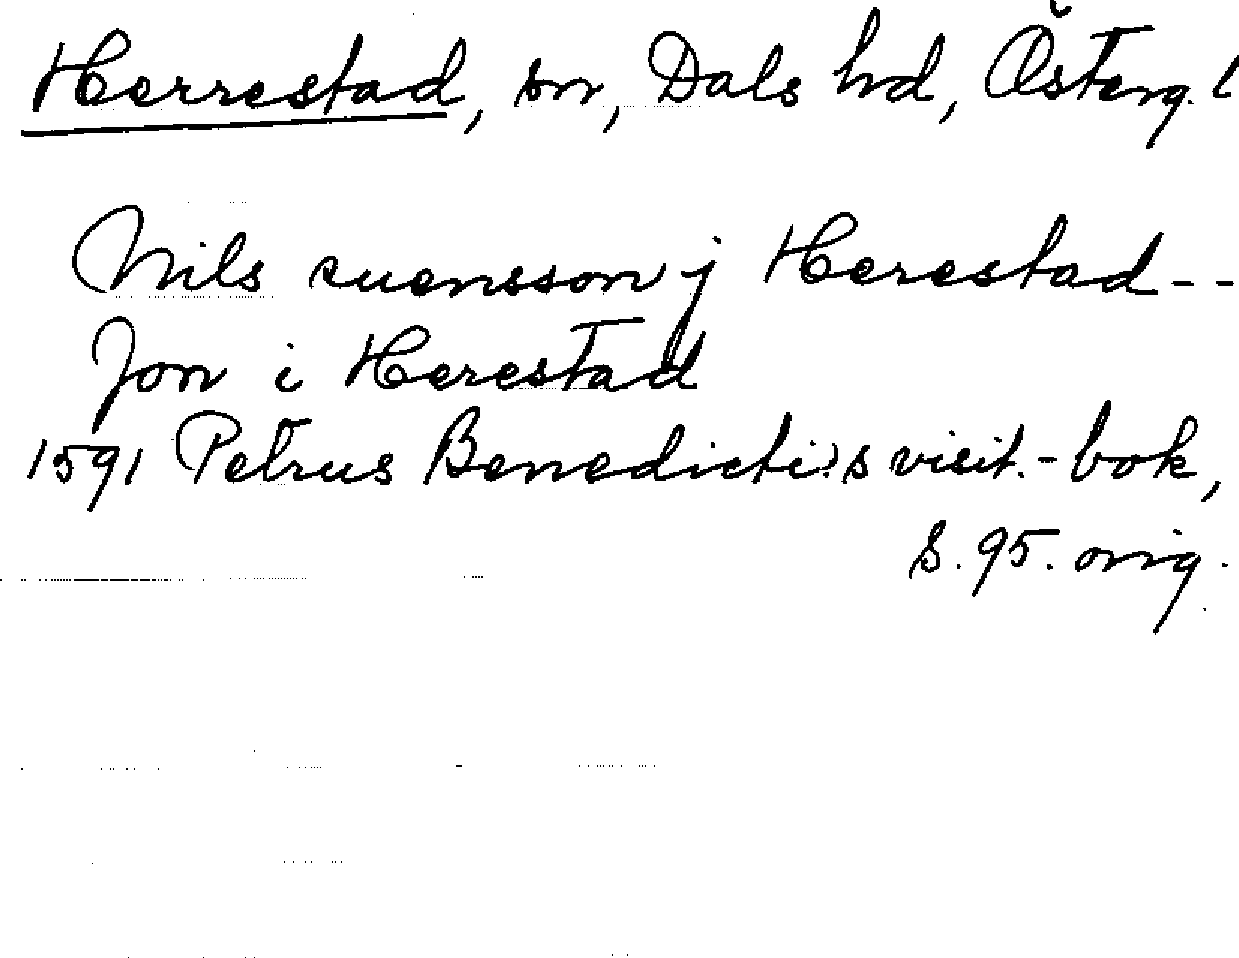 Herrestad, sn, Dals hd, Österg. l
Nils suensson j Herestad--
Jon i Herestad
1591 Petrus Benedicti:s visit.-bok,
s. 95. orig.